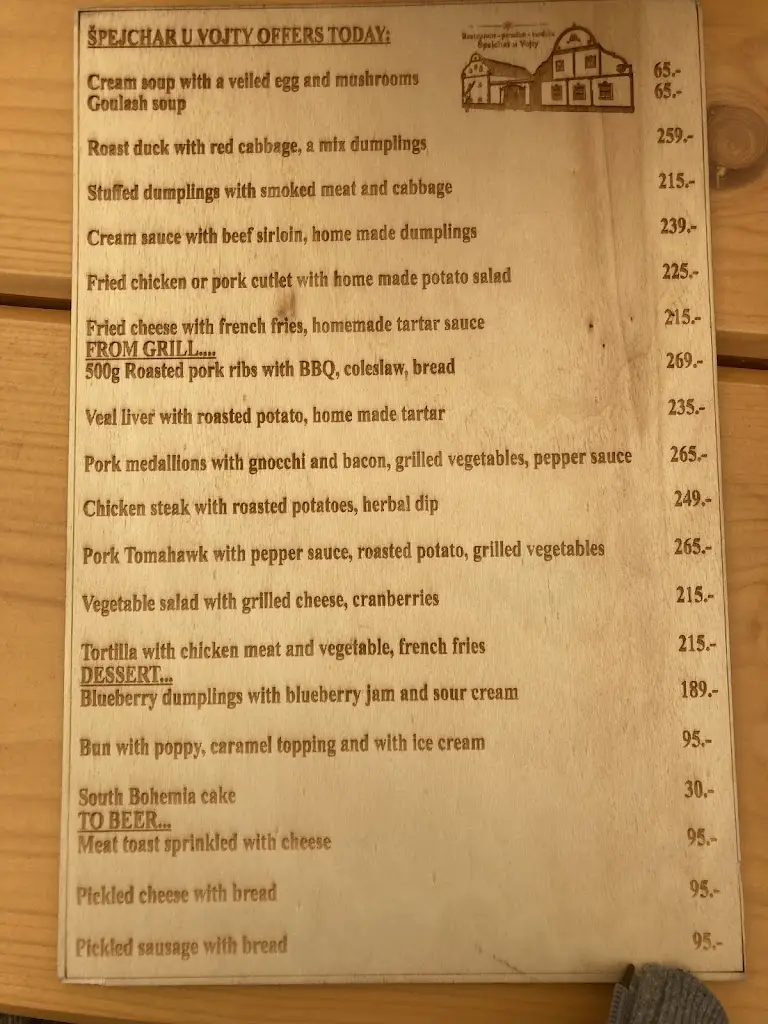 ŠPEJCHAR U VOJTY OFFERS TODAY:
Špejchar u Vojty
Cream soup with a veiled egg and mushrooms 65.-
Goulash soup 65.-
Roast duck with red cabbage, a mix dumplings 259.-
Stuffed dumplings with smoked meat and cabbage 215.-
Cream sauce with beef sirloin, home made dumplings 239.-
Fried chicken or pork cutlet with home made potato salad 225.-
Fried cheese with french fries, homemade tartar sauce 215.-
FROM GRILL....
500g Roasted pork ribs with BBQ, coleslaw, bread 269.-
Veal liver with roasted potato, home made tartar 235.-
Pork medallions with gnocchi and bacon, grilled vegetables, pepper sauce 265.-
Chicken steak with roasted potatoes, herbal dip 249.-
Pork Tomahawk with pepper sauce, roasted potato, grilled vegetables 265.-
Vegetable salad with grilled cheese, cranberries 215.-
Tortilla with chicken meat and vegetable, french fries 215.-
DESSERT...
Blueberry dumplings with blueberry jam and sour cream 189.-
Bun with poppy, caramel topping and with ice cream 95.-
South Bohemia cake 30.-
TO BEER...
Meat toast sprinkled with cheese 95.-
Pickled cheese with bread 95.-
Pickled sausage with bread 95.-